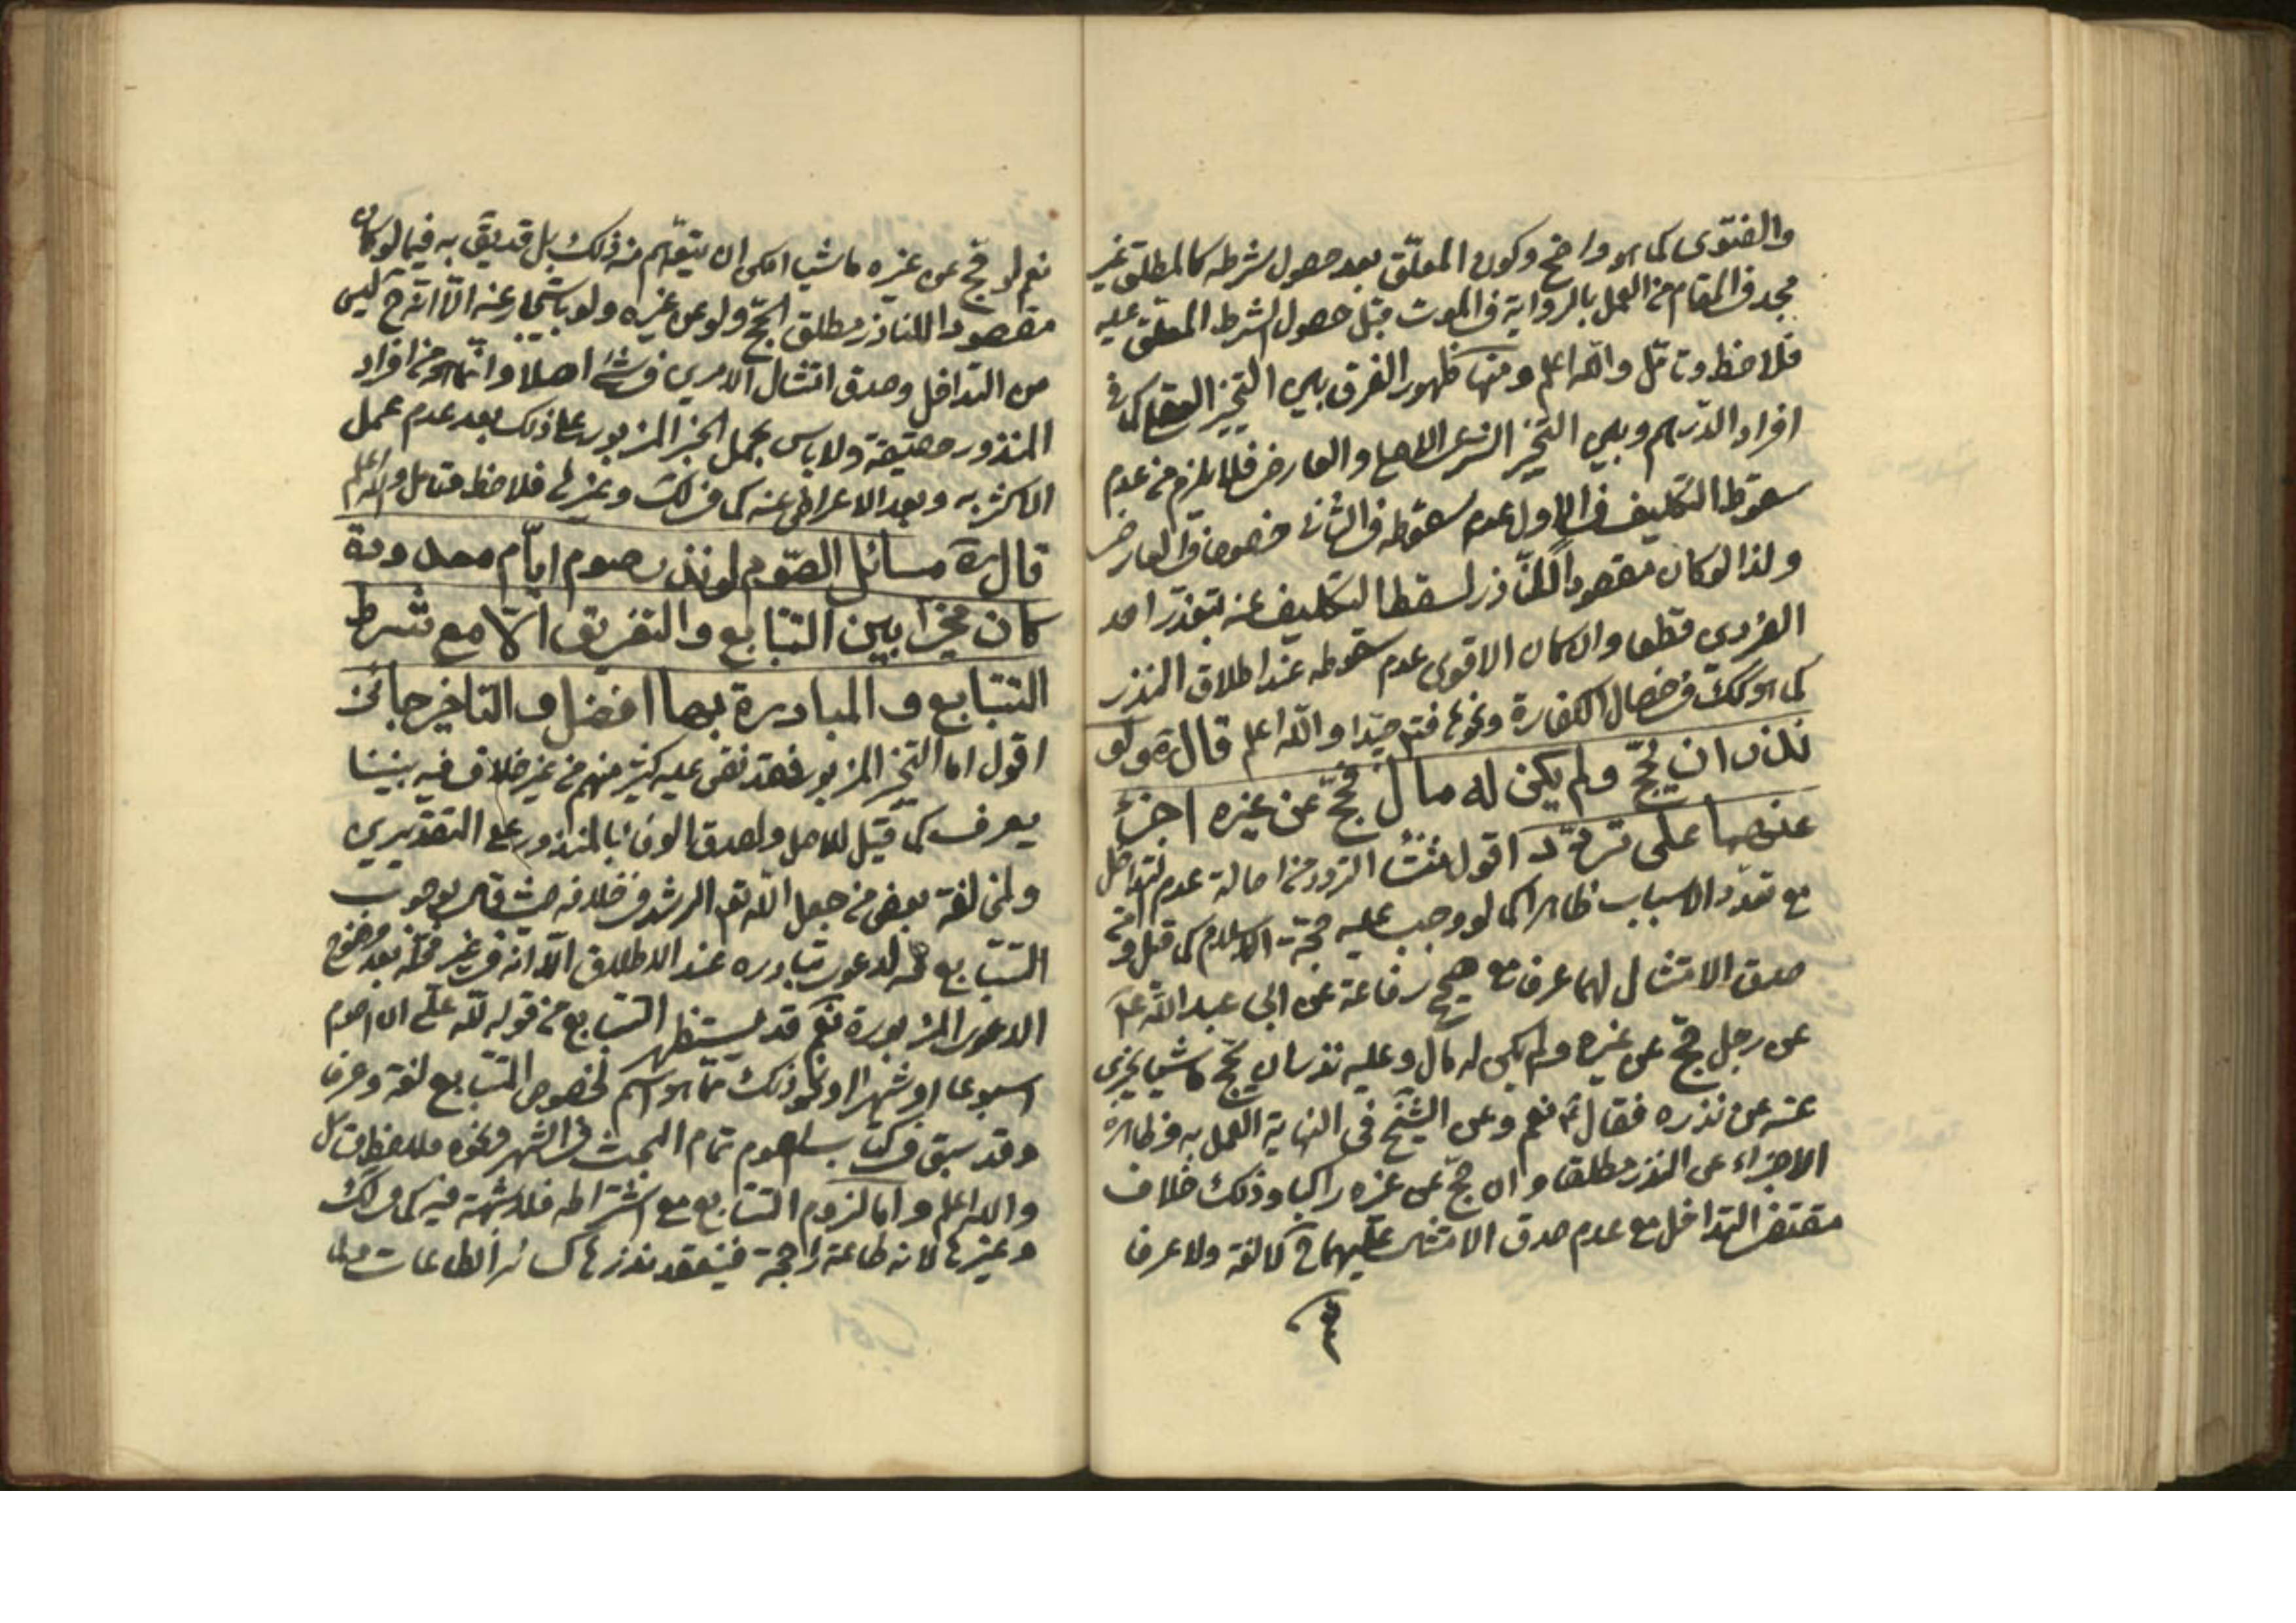 والفتوى كما هو واضح وكون المعلّق بعد حصول شرطه كالمطلق غير
مجد في المقام من العمل بالرواية في الموت قبل حصول الشرط المعلق عليه
فلاحظ وتامّل والله اعلم ومنها ظهور الفرق بين التخيير العقلي كما في
افراد الدرهم وبين التخيير الشرعي الاصلي والعارض فلا يلزم من عدم
سقوط التكليف في الاول عدم سقوطه في الثاني خصوصا في العارض
ولذا لو كان مقصودا للناذر لسقط التكليف عنه بتعذّر احد
الفردين قطعا وان كان الاقوى عدم سقوطه عند اطلاق النذر
كما هو كك في خصال الكفارة ونحوها فتم جيّدا والله اعلم قال ره ولو
نذر ان يحجّ ولم يكن له مال فحجّ عن غيره اجزء
عنهما على تردّد اقول منشأ التردد من اصالة عدم تداخل
مع تعدّد الاسباب ظاهرا كما لو وجب عليه حجّة الاسلام كما قيل و
صدق الامتثال لهما عرفا مع صحيح رفاعة عن ابي عبد الله ع
عن رجل حجّ عن غيره ولم يكن له مال وعليه نذر ان يحجّ ماشيا يجزى
عنه عن نذره فقال ع نعم وعن الشيخ في النهاية العمل به وظاهره
الاجزاء عن النذر مطلقا وان حجّ عن غيره راكبا وذلك خلاف
مقتضى التداخل مع عدم صدق الامتثال عليهما لغة ولا عرفا
نعم لو حج عن غيره ماشيا امكن ان يتوهّم منه ذلك بل قد يق به فيما لو كان
مقصود الناذر مطلق الحجّ ولو عن غيره ولو باستيجار عنه الّا انّه ح ليس
من التداخل وصدق امتثال الامرين في شئ اصلا وانّما هو من افراد
المنذور حقيقة ولا باس بحمل الخبر المزبور على ذلك بعد عدم عمل
الاكثر به وبعد الاعراض عنه كما في لك وغيرها فلاحظ وتامل والله اعلم
قال ره مسائل الصّوم لو نذر صوم ايّام معدودة
كان مخيّرا بين التتابع والتفريق الّا مع شرط
التتابع والمبادرة بها افضل والتاخير جائز
اقول اما التخيير المزبور فقد نص عليه كثير منهم من غير خلاف فيه بيننا
يعرف كما قيل للاصل ولصدق الوفاء بالمنذور على التقديرين
ولمخالفة بعض من جعل الله تع الرشد في خلافه حيث قال بوجوب
التتابع لدعوى تبادره عند الاطلاق الّا انّه في غير محلّه بعد وضوح
الدعوى المزبورة نعم قد يستظهر التتابع من قوله لله علّى ان اصوم
اسبوعا او شهرا او نحو ذلك ممّا هو اسم لخصوص المتتابع لغة وعرفا
وقد سبق في كتاب الصوم تمام البحث في الشهر ونحوه فلاحظ وتامل
والله اعلم واما لزوم التتابع مع اشتراطه فلا شبهة فيه كما في لك
وغيرها لانه طاعة راجحة فينعقد نذرها كسائر الطاعات